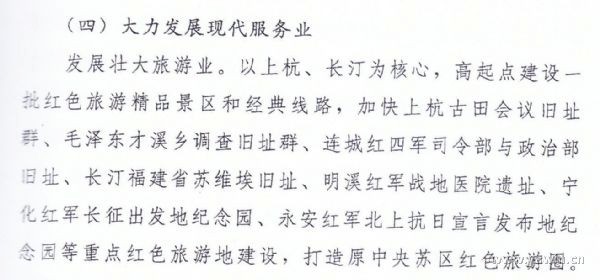 （四）大力发展现代服务业
发展壮大旅游业。以上杭、长汀为核心，高起点建设一
批红色旅游精品景区和经典线路，加快上杭古田会议旧址
群、毛泽东才溪乡调查旧址群、连城红四军司令部与政治部
旧址、长汀福建省苏维埃旧址、明溪红军战地医院遗址、宁
化红军长征出发地纪念园、永安红军北上抗日宣言发布地纪
念园等重点红色旅游地建设，打造原中央苏区红色旅游圈。